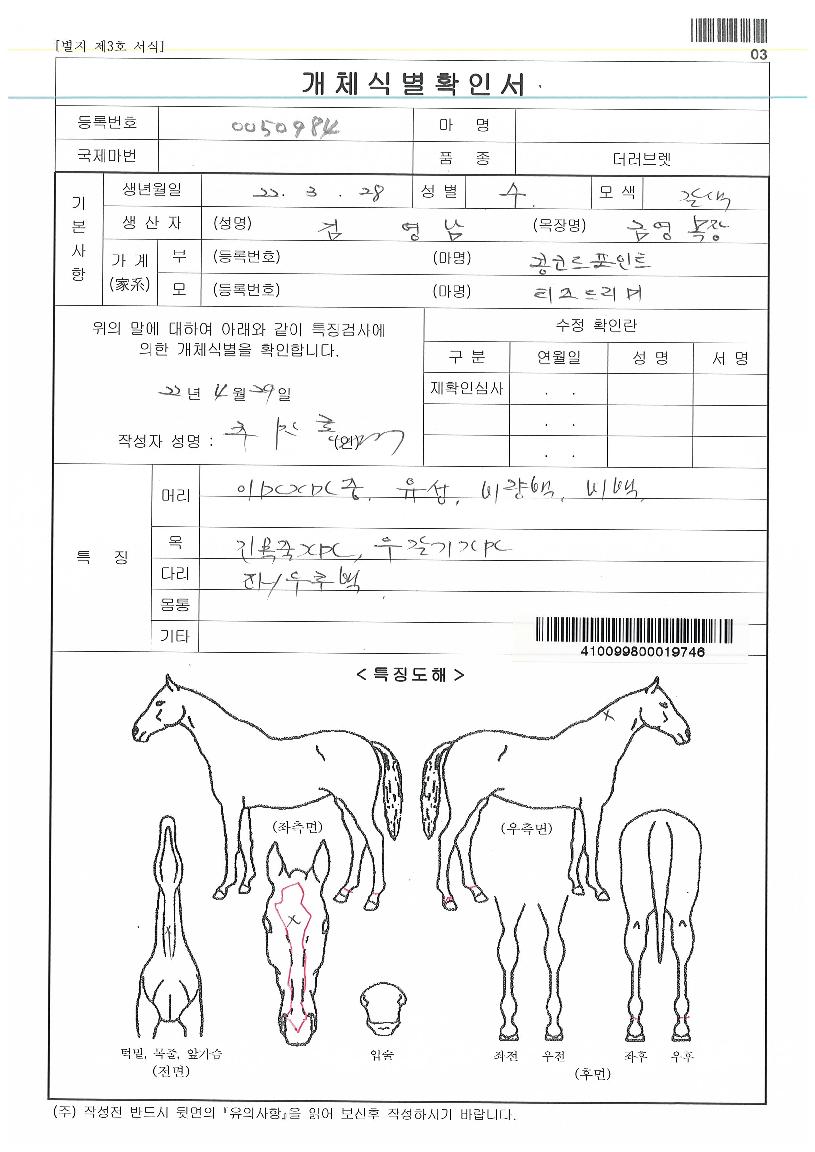 [별지 제3호 서식]
03
개체식별확인서
등록번호 0050984 마 명
국제마번 품 종 더러브렛
기본사항
생년월일 22. 3. 28 성별 수 모색 갈색
생산자 (성명) 김영남 (목장명) 금영목장
가계(家系) 부 (등록번호) (마명) 콩코드포인트
모 (등록번호) (마명) 티즈드리머
위의 말에 대하여 아래와 같이 특징검사에
의한 개체식별을 확인합니다.
22년 4월 29일
작성자 성명 : (인)
수정 확인란
구분 연월일 성명 서명
재확인심사 . .
. .
. .
특징
머리 유성, 비량백, 비백
목
다리 좌/우후백
몸통
기타
410099800019746
<특징도해>
(좌측면) (우측면)
턱밑, 목줄, 앞가슴
(전면)
입술
좌전 우전 좌후 우후
(후면)
(주) 작성전 반드시 뒷면의 『유의사항』을 읽어 보신후 작성하시기 바랍니다.